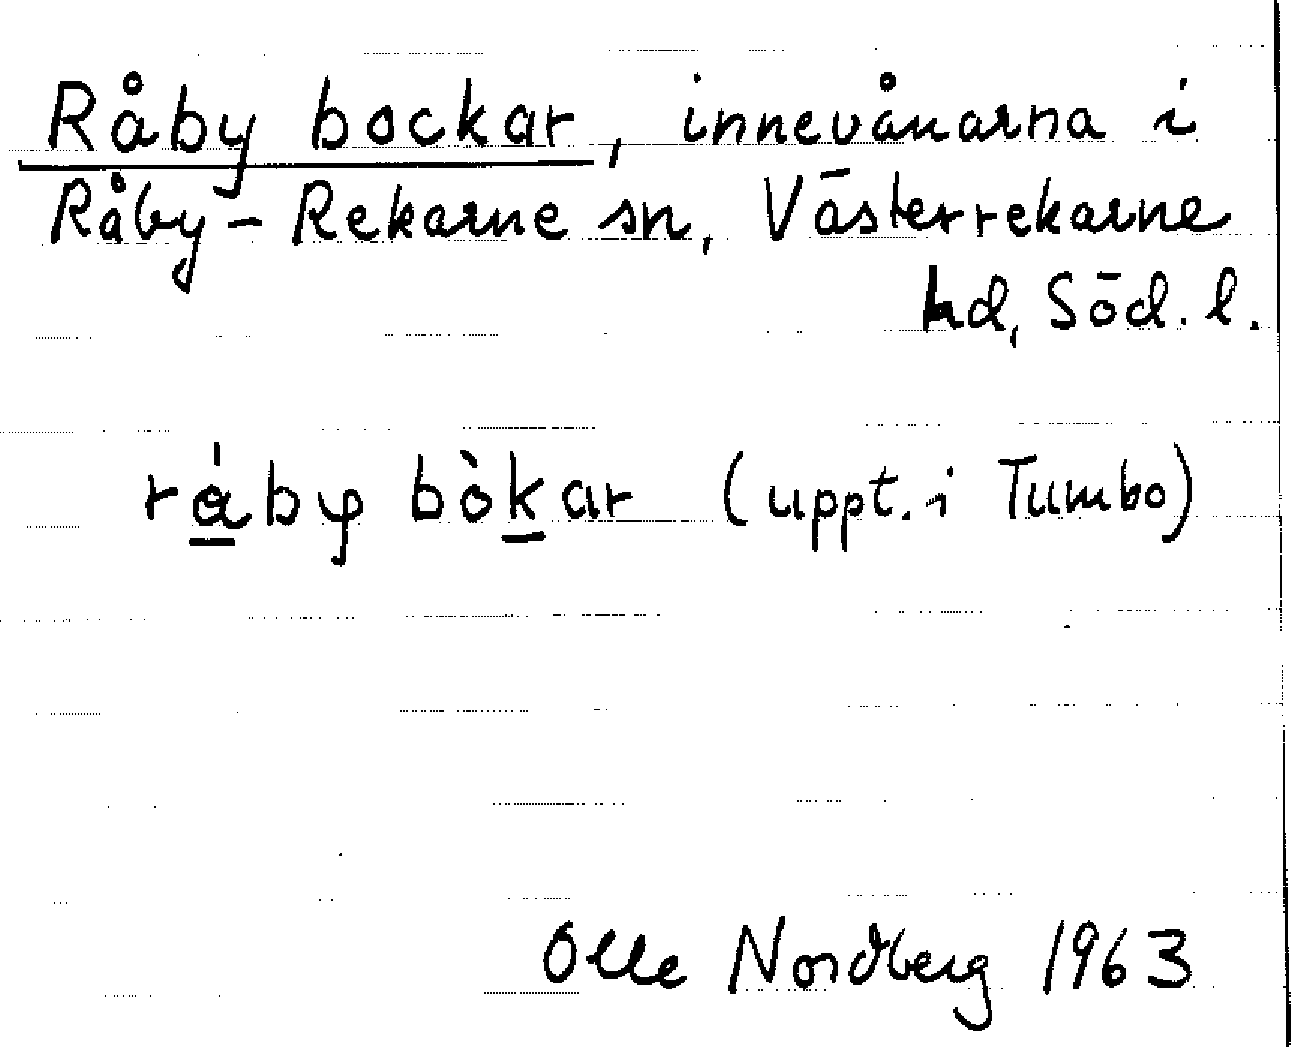 Råby bockar, innevånarna i
Råby-Rekarne sn, Västerrekarne
hd, Söd. l.
rá̱by bòḵar (uppt. i Tumbo)
Olle Nordberg 1963